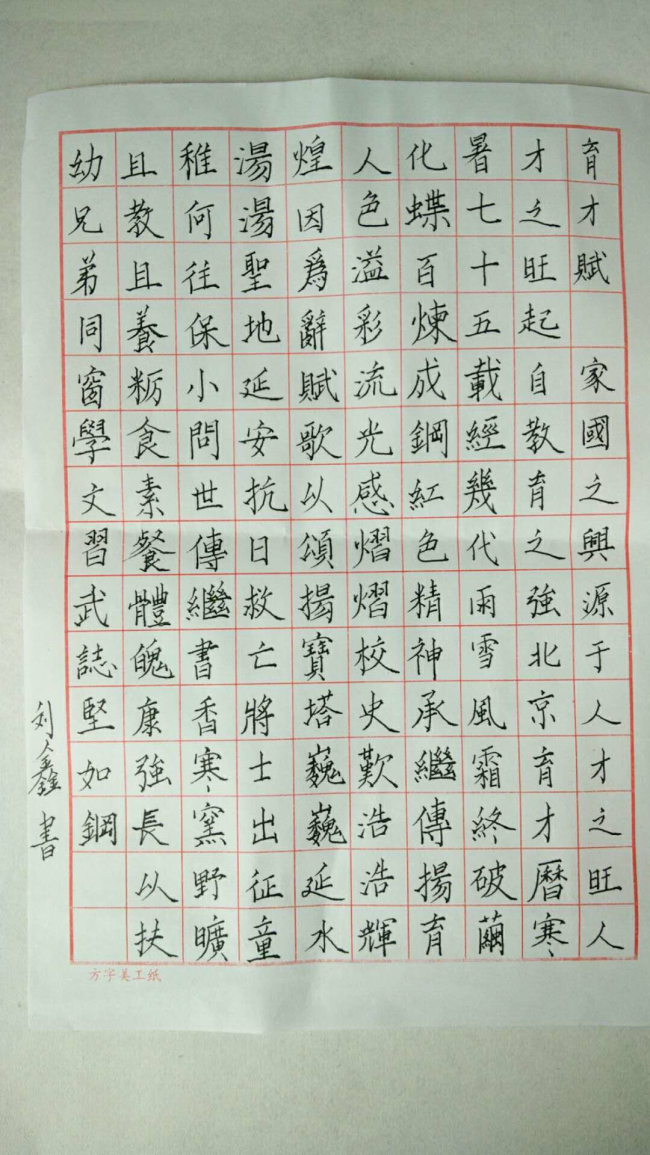 育才賦 家國之興源于人才之旺人
才之旺起自教育之強北京育才曆寒
暑七十五載經幾代雨雪風霜終破繭
化蝶百煉成鋼紅色精神承繼傳揚育
人色溢彩流光感熠熠校史歎浩浩輝
煌因爲辭賦歌以頌揚寶塔巍巍延水
湯湯聖地延安抗日救亡將士出征童
稚何往保小問世傳繼書香寒窯野曠
且教且養粝食素餐體魄康強長以扶
幼兄弟同窗學文習武誌堅如鋼
刘鑫書
方字美工纸